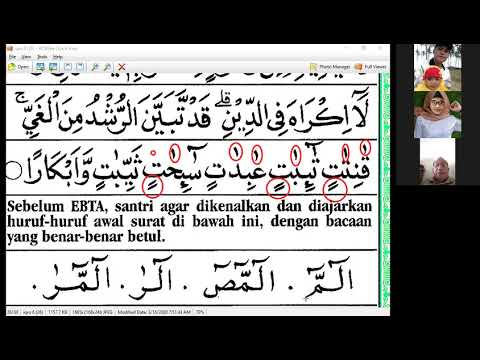 File Edit View Help
Open
Photo Manager
Full Viewer
لَآ اِكْرَاهَ فِى الدِّيْنِ ۗ قَدْ تَّبَيَّنَ الرُّشْدُ مِنَ الْغَيِّ ۚ
قٰنِتٰتٍ تٰۤىِٕبٰتٍ عٰبِدٰتٍ سٰۤىِٕحٰتٍ ثَيِّبٰتٍ وَّاَبْكَارًا
Sebelum EBTA, santri agar dikenalkan dan diajarkan
huruf-huruf awal surat di bawah ini, dengan bacaan
yang benar-benar betul.
الٓمّٓ ۰ الٓمّٓصٓ ۰ الٓرٰ ۰ الٓمّٓرٰ ۰